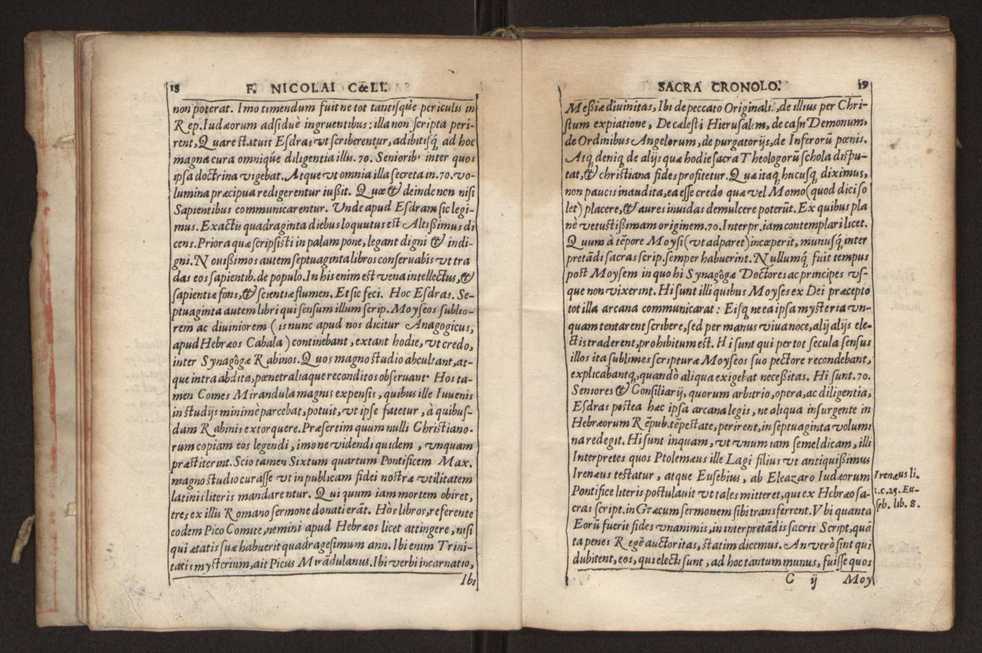 18 F. NICOLAI CœLI.
non poterat. Imo timendum fuit ne tot tantisq́ue periculis in
Rep. Iudæorum adsiduè ingruentibus : illa non scripta peri-
rent, Quare statuit Esdras vt scriberentur, adibitisq́ ad hoc
magna cura omniq́ue diligentia illis. 70. Seniorib᾽ inter quos
ipsa doctrina vigebat. Atque vt omnia illa secreta in. 70. vo-
lumina præcipua redigerentur iußit. Quæ & deinde non nisi
Sapientibus communicarentur. Vnde apud Esdram sic legi-
mus. Exactis quadraginta diebus loquutus est Altißimus di
cens. Priora quæ scripsisti in palam pone, legant digni & indi-
gni. Nouißimos autem septuaginta libros conseruabis vt tra
das eos sapientib. de populo. In his enim est vena intellectus, &
sapientiæ fons, & scientiæ flumen. Et sic feci. Hoc Esdras. Se-
ptuaginta autem libri qui sensum illum scrip. Moyseos sublio-
rem ac diuiniorem ( is nunc apud nos dicitur Anagogicus,
apud Hebræos Cabala ) continebant, extant hodie, vt credo,
inter Synagogæ Rabinos. Quos magno studio abcultant, at-
que intra abdita, pœnetraliaque reconditos obseruant. Hos ta-
men Comes Mirandula magnis expensis, quibus ille Iuuenis
in studijs minimè parcebat, potuit, vt ipse fatetur, à quibus-
dam Rabinis extorquere. Præsertim quum nulli Christiano-
rum copiam eos legendi, imo ne videndi quidem , vnquam
præstiterint. Scio tamen Sixtum quartum Pontificem Max.
magno studio curasse vt in publicam fidei nostræ vtilitatem
latinis literis mandarentur. Qui quum iam mortem obiret,
tres ex illis Romano sermone donati erāt. Hos libros, referente
eodem Pico Comite, nemini apud Hebræos licet attingere, nisi
qui ætatis suæ habuerit quadragesimum ann. Ibi enim Trini-
tatis mysterium, ait Picus Mirādulanus. Ibi verbi incarnatio,
Ibi
SACRA CRONOLO. 19
Messiæ diuinitas, Ibi de peccato Originali , de illius per Chri-
stum expiatione, De cælesti Hierusalem, de casu Demonum,
de Ordinibus Angelorum, de purgatorijs, de Inferorū pœnis.
Atq́ deniq́ de alijs quæ hodie sacra Theologorū schola dispu-
tat, & christiana fides profitetur. Quæ itaq́ hucusq́ diximus,
non paucis inaudita, ea esse credo quæ vel Momo ( quod dici so
let) placere, & aures inuidas demulcere poterūt. Ex quibus pla
nè vetustißimam originem. 70. Interpr. iam contemplari licet.
Quum à tēpore Moysi ( vt adparet) incæperit, munusq́ inter
pretādi sacras scrip. semper habuerint. Nullumq́ fuit tempus
post Moysem in quo hi Synagogæ Doctores ac principes vs-
que non vixerint. Hi sunt illi quibus Moyses ex Dei præcepto
tot illa arcana communicarat : Eisq́ ne ea ipsa mysteria vn-
quam tentarent scribere, sed per manus viua voce, alij alijs ele-
ctis traderent, prohibitum est. Hi sunt qui per tot secula sensus
illos ita sublimes scripturæ Moyseos suo pectore recondebant,
explicabantq́, quandò aliqua exigebat necessitas. Hi sunt. 70.
Seniores & Consiliarij, quorum arbitrio, opera, ac diligentia,
Esdras postea hæc ipsa arcana legis, ne aliqua insurgente in
Hebræorum Repub. tēpestate, perirent, in septuaginta volumi
na redegit. Hi sunt inquam, vt vnum iam semel dicam, illi
Interpretes quos Ptolemæus ille Lagi filius vt antiquißimus
Irenæus testatur , atque Eusebius, ab Eleazaro Iudæorum
Pontifice literis postulauit vt tales mitteret, qui ex Hebræo sa-
cras script. in Græcum sermonem sibi transferrent. Vbi quanta
Eorū fuerit fides vnanimis, in interpretādis sacris Script, quā
ta penes Regē auctoritas, statim dicemus. An verò sint qui
dubitent, eos, qui electi sunt , ad hoc tantum munus, fuisse quos
Irenæus li.
1. c. 25. Eu-
seb. lib. 8.
C ij Moy